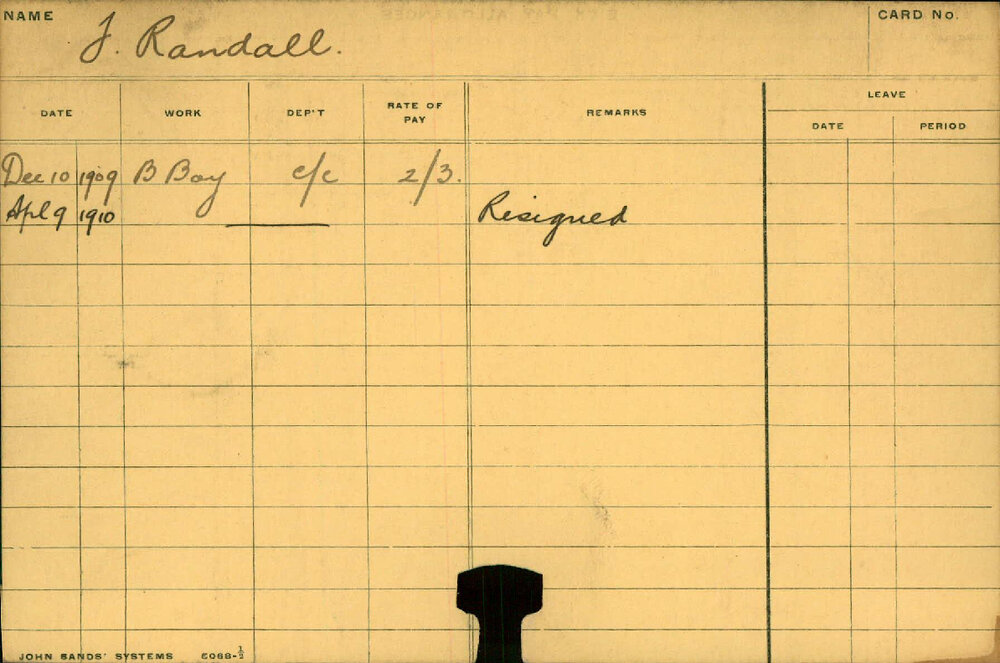 NAME J. Randall. CARD No.
DATE WORK DEP'T RATE OF PAY REMARKS LEAVE
DATE PERIOD
Dec 10 1909 B Boy c/c 2/3.
Apl 9 1910 Resigned
JOHN SANDS' SYSTEMS 6088-½